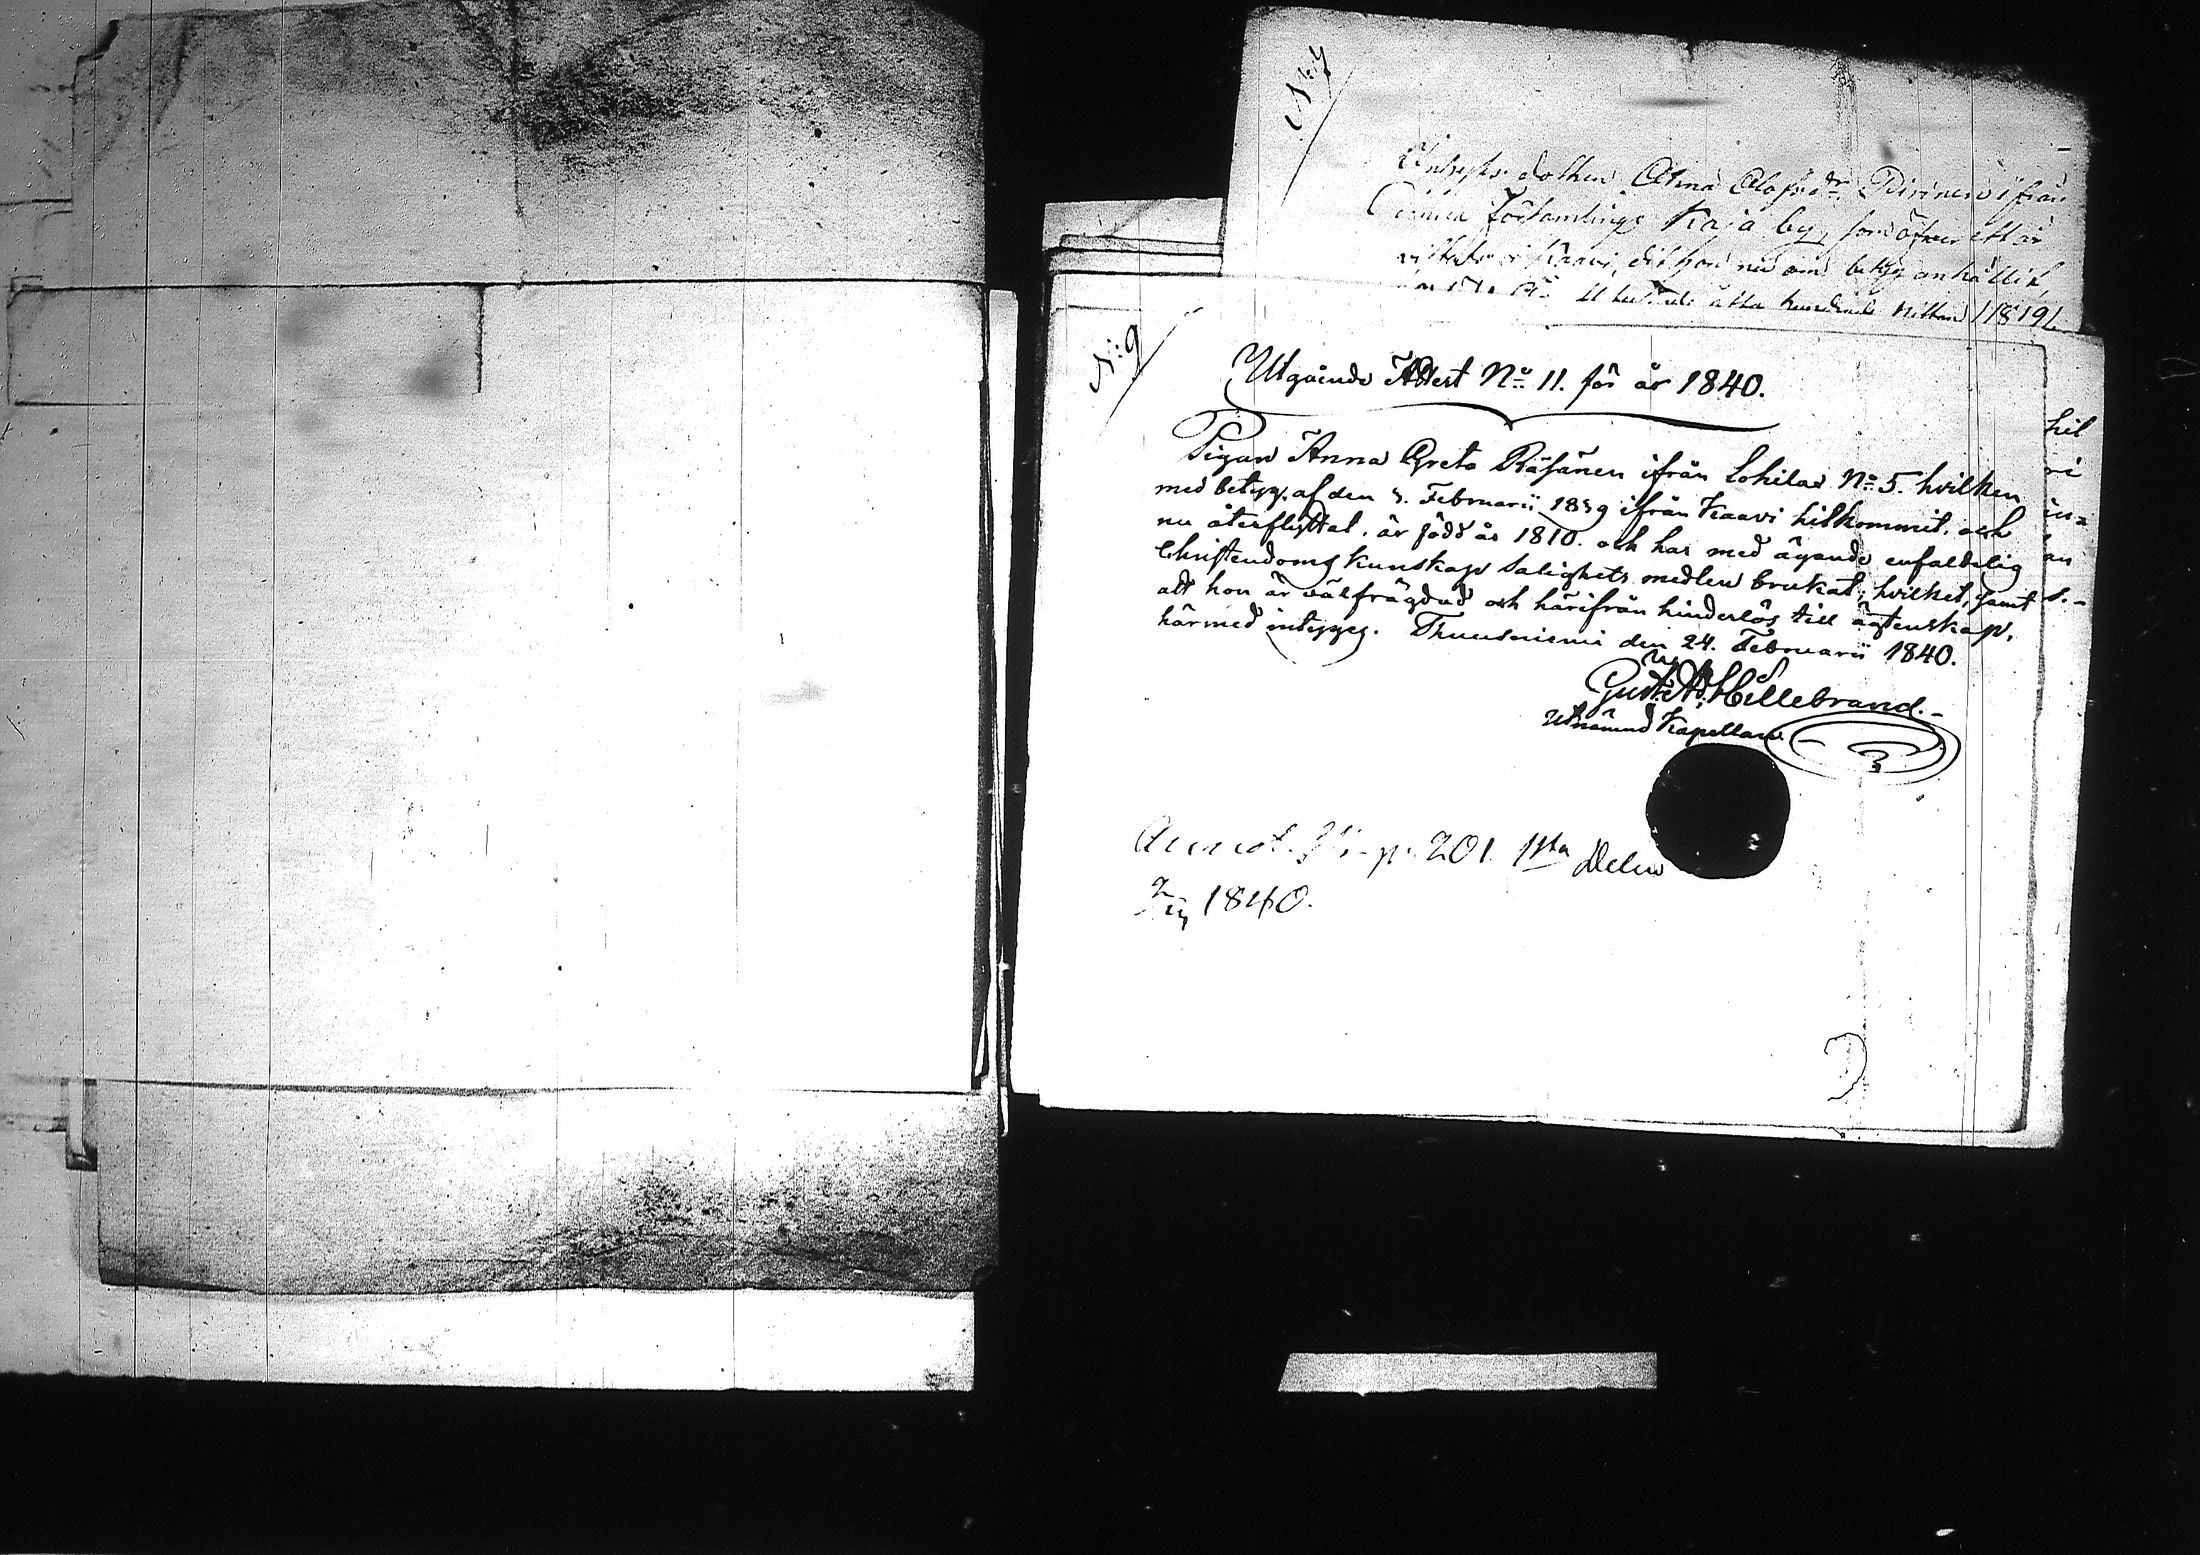 Enkefs dottren Anna Olofsdr Pirinen ifrån
församlings Kaja by, som öfver ett år
vistats i Kaavi, dit hon nu om betyg anhållit,
ett tusende åtta hundrade nittan /1819/
N:9
Utgående Attest No 11. för år 1840.
Pigan Anna Greta Räsänen ifrån Lohilax No 5. hvilken
med betyg af den 3. Februarii 1839 ifrån Kaavi hitkommit, och
nu återflyttat, är född år 1810. och har med ägande enfaldelig
Christendoms kunskap salighets medlen brukat; hvilket, samt
att hon är välfrägdad och härifrån hinderlös till ägtenskap,
härmed intygas. Thuusniemi den 24. Februarii 1840.
Gust. Ad. Hillebrand.-
Utnämnd Kapellan.
Annot. p. 201 1sta Delen
1840.
hit